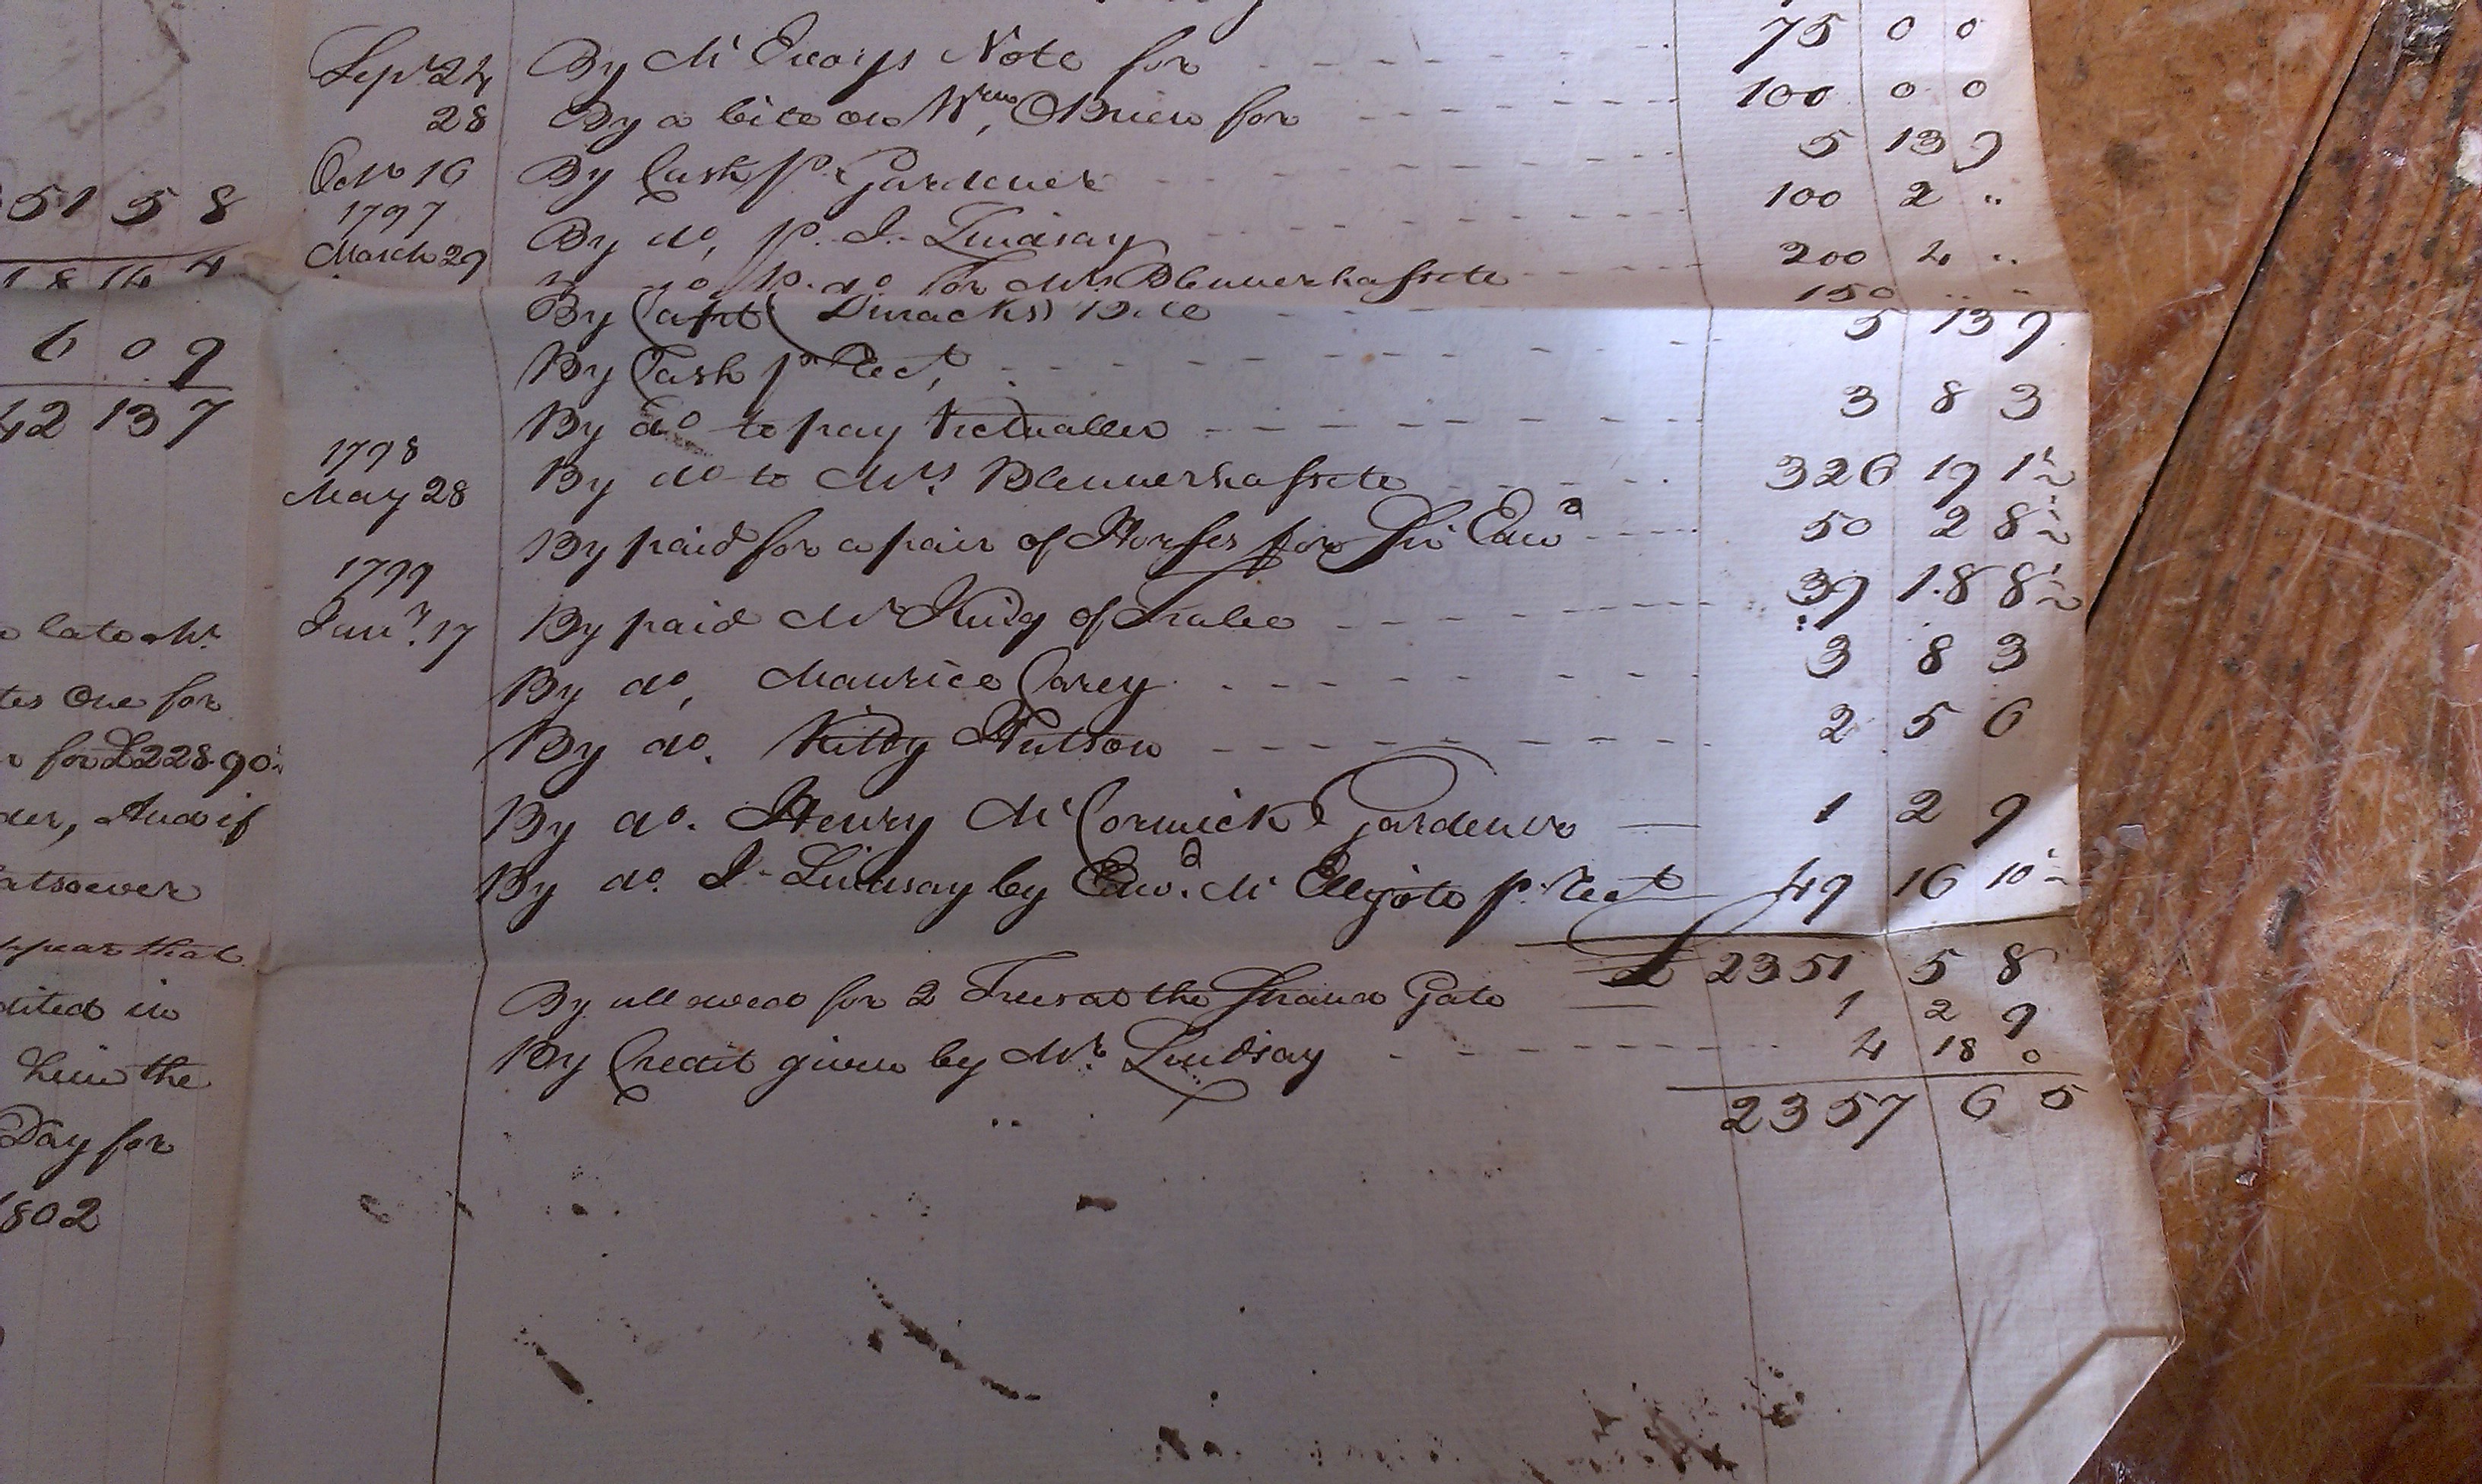 51 5 8
6 0 9
42 13 7
late Mr
One for
for £228 9 0
And if
that
in
him the
Day for
1802
Sepr 24 By McEvoys Note for 75 0 0
28 By a bill on Wm, OBrien for 100 0 0
Octr 16 By Cash pr Gardener 5 13 9
1797
March 29 By do, pr J. Lindsay 100 2 "
pr do for Mrs Blennerhassett 200 4 "
By Capt Bill 150 " "
By Cash pr Rect, 5 13 9
By do to pay Victualler 3 8 3
1798
May 28 By do to Mrs Blennerhassett 326 19 1½
By paid for a pair of Horses for Sir Edwd 50 2 8½
1799
Jany. 17 By paid Mr King of Tralee 39 18 8½
By do, Maurice Carey 3 8 3
By do. Kitty Hutson 2 5 6
By do. Henry McCormick Gardener 1 2 9
By do. J. Lindsay by Edwd. McElligott pr Rect 49 16 10½
£ 2351 5 8
By allowed for 2 Trees at the Strand Gate 1 2 9
By Credit given by Mr. Lindsay 4 18 0
2357 6 5